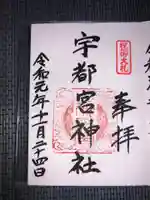 奉拝
宇都宮神社
令和元年十一月二十四日